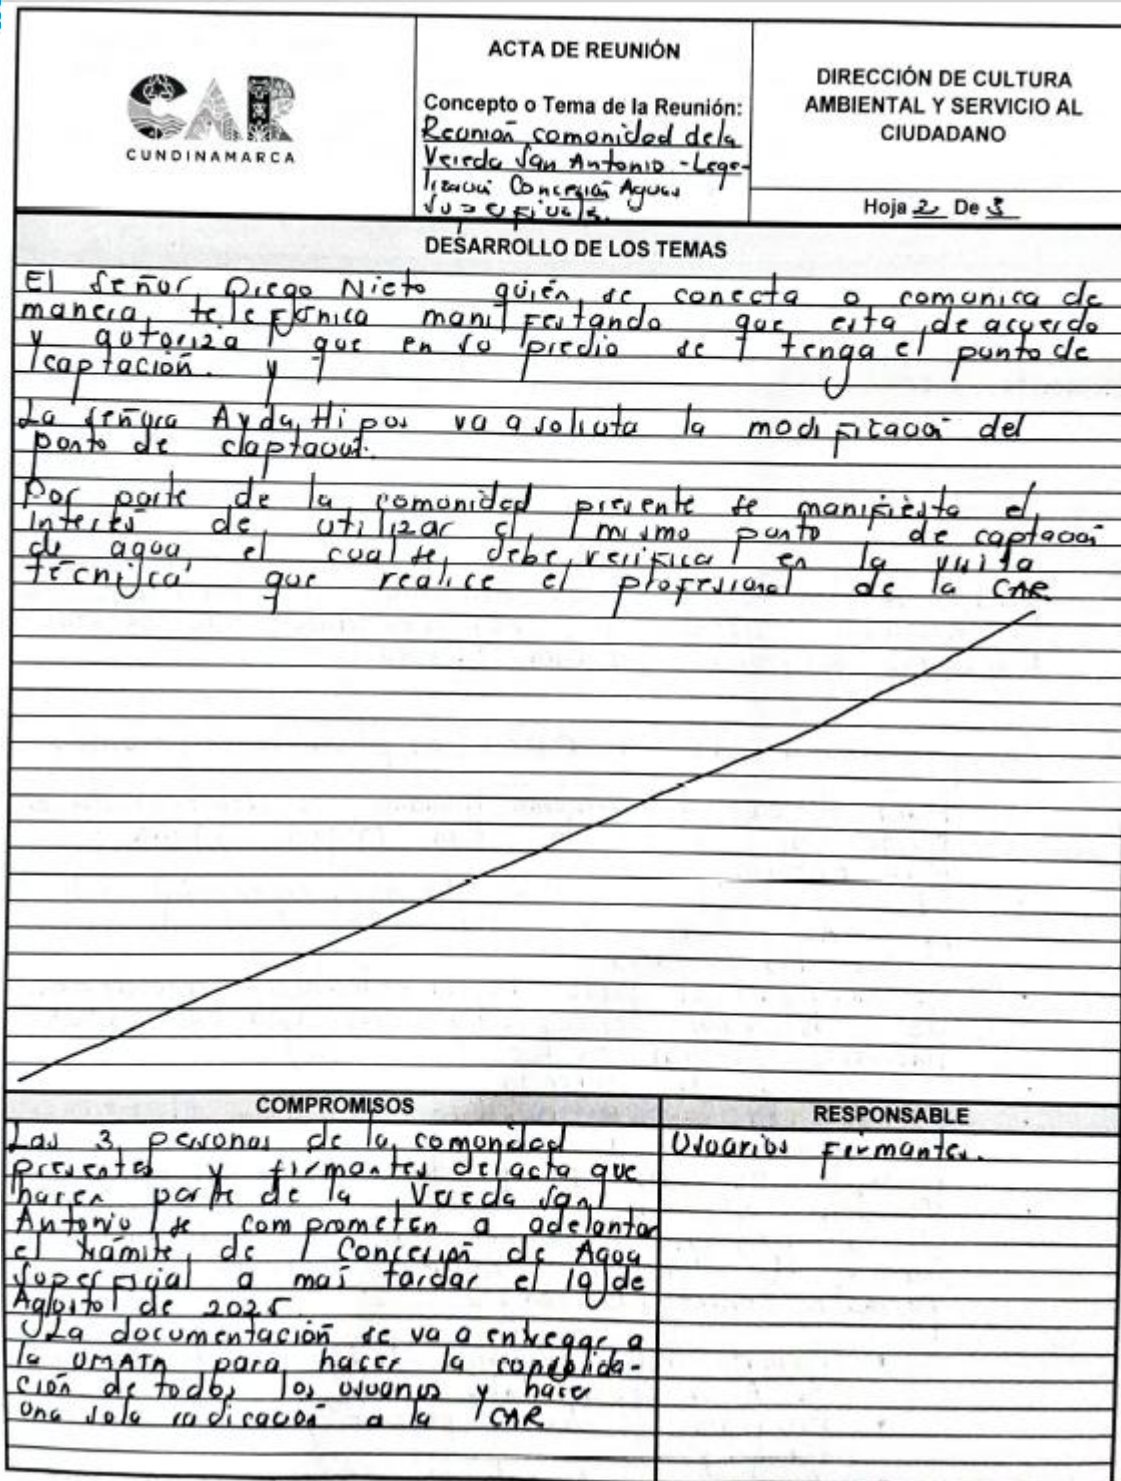 CAR
CUNDINAMARCA
ACTA DE REUNIÓN
Concepto o Tema de la Reunión:
Reunión comunidad de la
Vereda San Antonio - Lega-
lización Concesión Aguas
DIRECCIÓN DE CULTURA
AMBIENTAL Y SERVICIO AL
CIUDADANO
Hoja 2 De 3
DESARROLLO DE LOS TEMAS
El señor Diego Nieto quién se conecta o comunica de
manera telefónica manifestando que esta de acuerdo
y autoriza que en su predio se tenga el punto de
captación. y
La señora Ayda va a solicita la modificación del
punto de claptación.
Por parte de la comunidad presente se manifiesta el
interés de utilizar el mismo punto de captación
de agua, el cual se debe verificar en la visita
técnica que realice el profesional de la CAR
COMPROMISOS
Las 3 personas de la comunidad
presentes y firmantes del acta que
hacen parte de la Vereda San
Antonio se comprometen a adelantar
el trámite de Concesión de Agua
Superficial a mas tardar el 19 de
Agosto de 2025.
La documentación se va a entregar a
la UMATA para hacer la consolida-
ción de todos los usuarios y hacer
una sola radicación a la CAR
RESPONSABLE
Usuarios Firmantes.